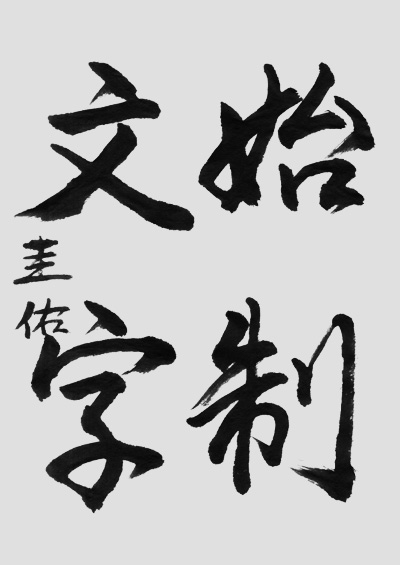 始制
文字
圭佑